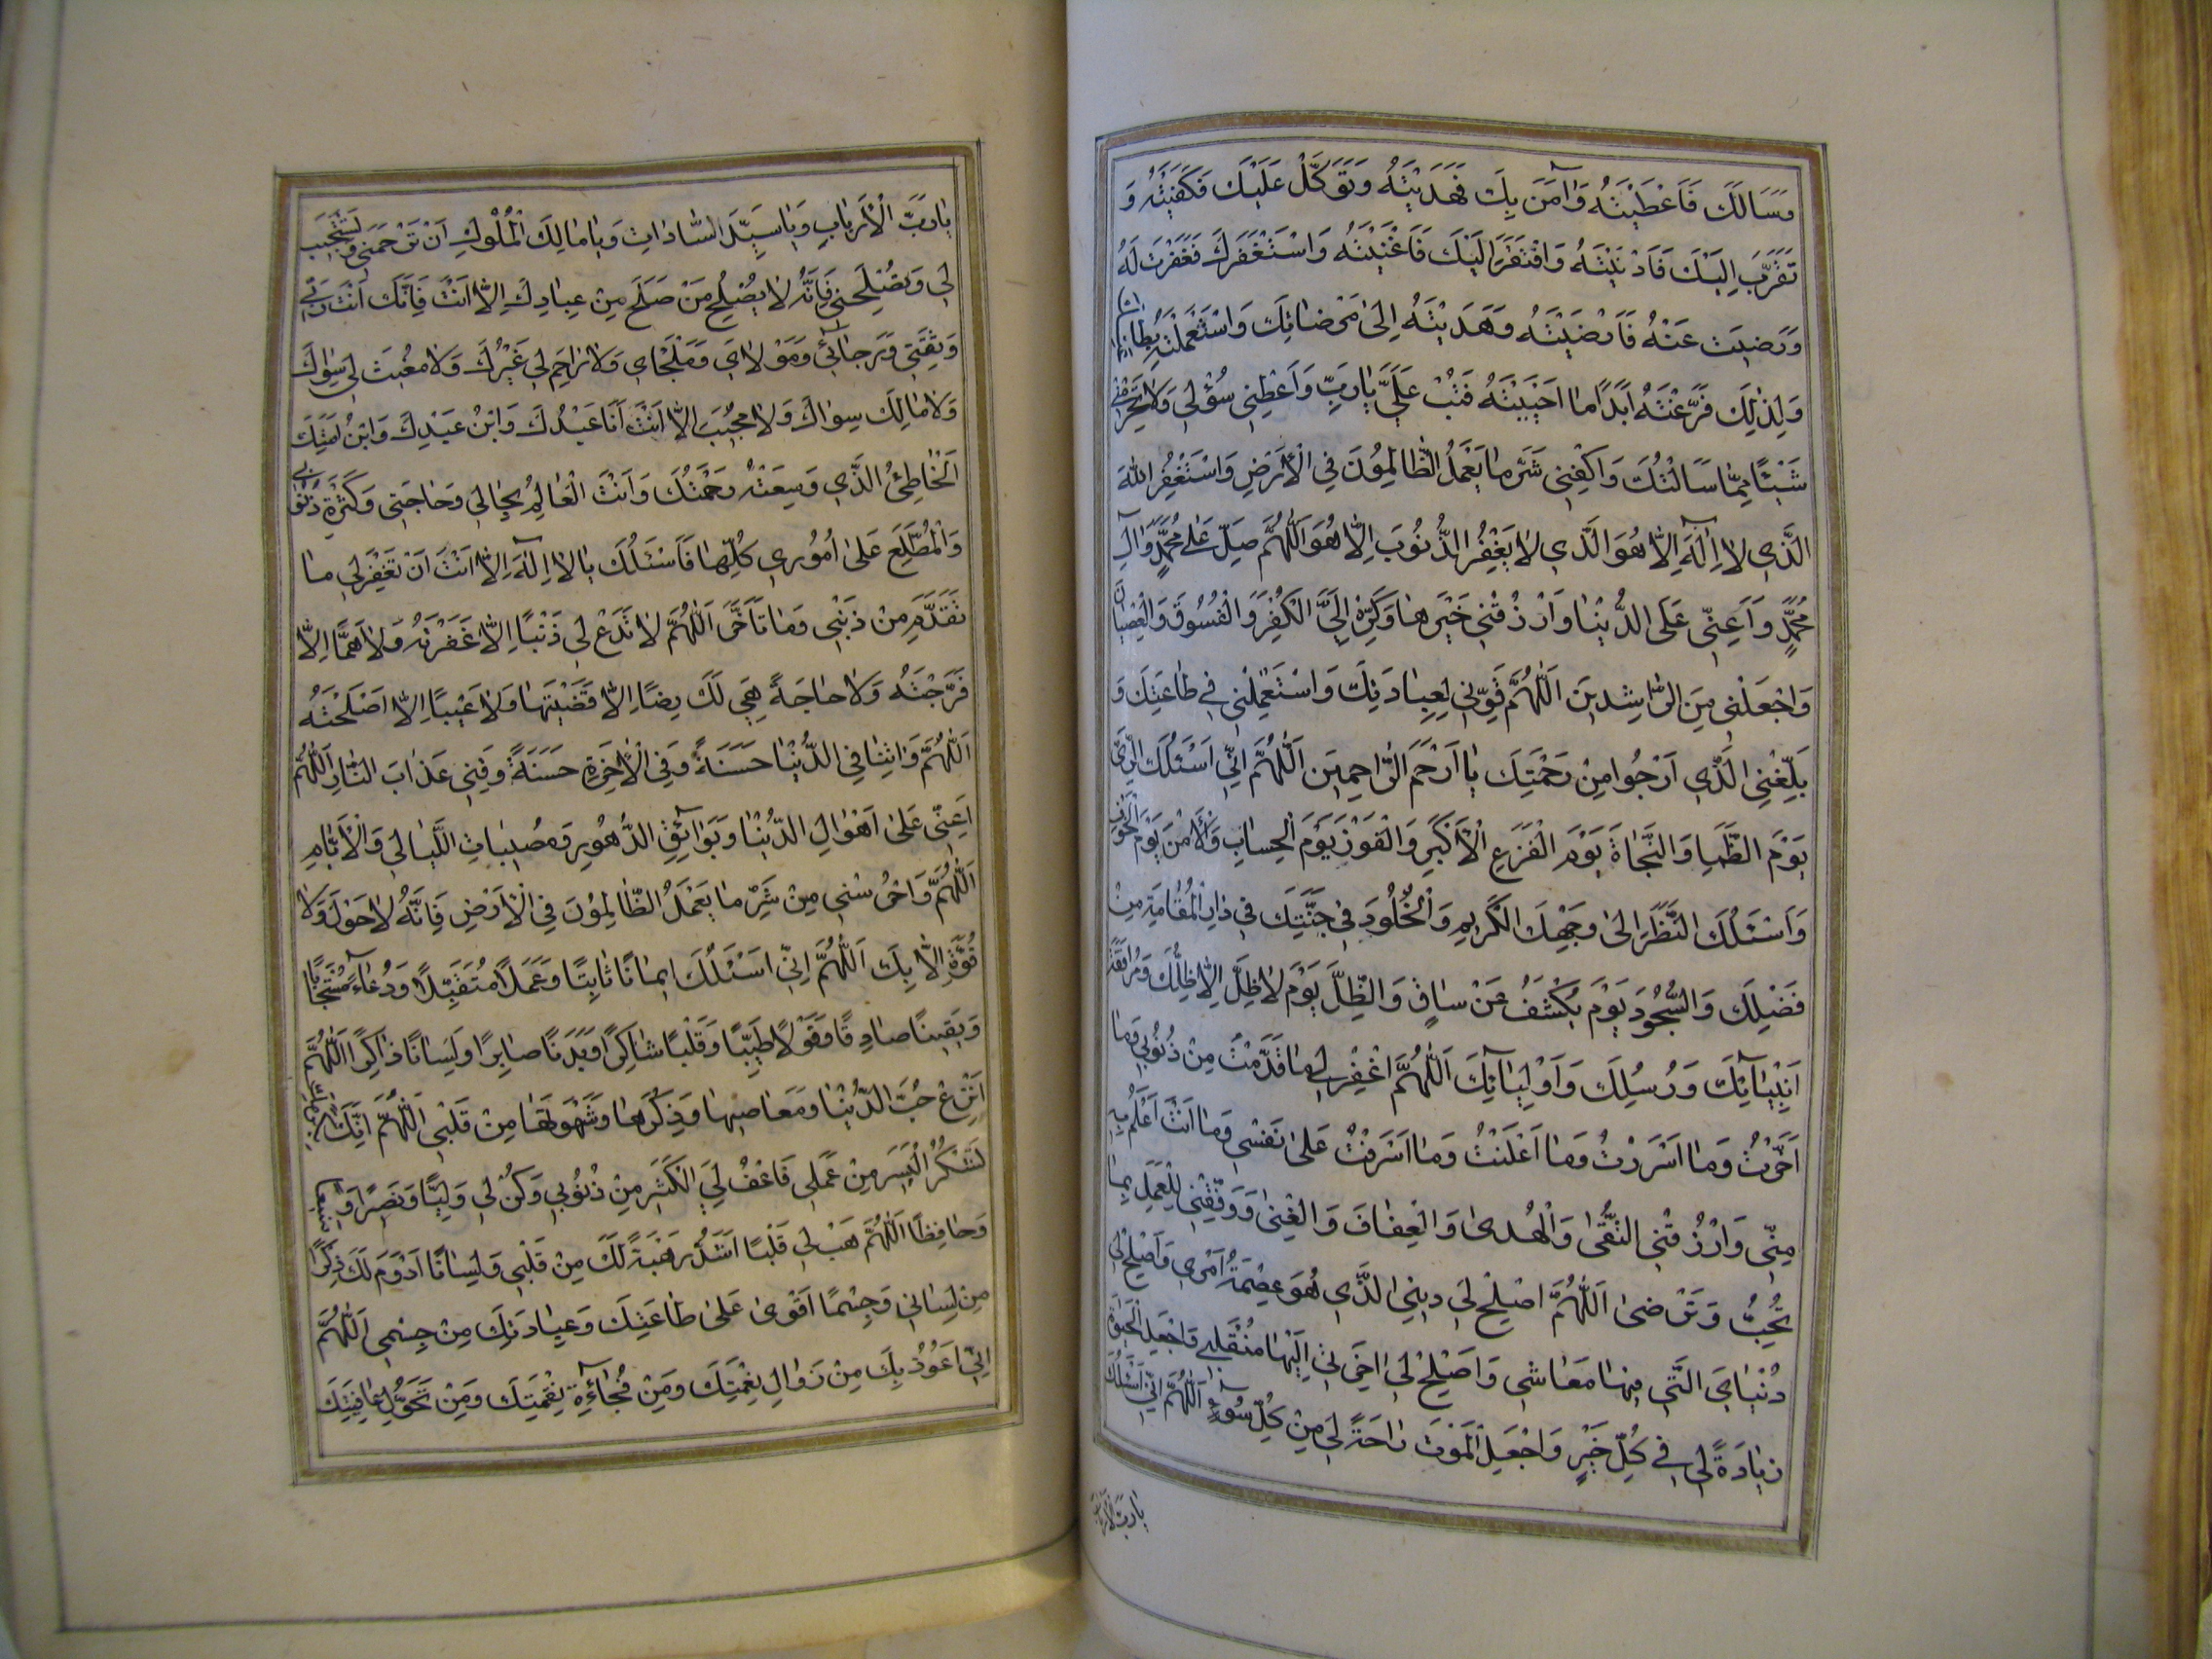 وَسَاَلَكَ فَاَعْطَيْتَهُ وَآمَنَ بِكَ فَهَدَيْتَهُ وَتَوَكَّلَ عَلَيْكَ فَكَفَيْتَهُ وَ
تَقَرَّبَ اِلَيْكَ فَاَدْنَيْتَهُ وَافْتَقَرَ اِلَيْكَ فَاَغْنَيْتَهُ وَاسْتَغْفَرَكَ فَغَفَرْتَ لَهُ
وَرَضِيتَ عَنْهُ فَاَرْضَيْتَهُ وَهَدَيْتَهُ اِلىٰ مَرْضَاتِكَ وَاسْتَعْمَلْتَهُ بِطَاعَتِكَ
وَلِذٰلِكَ فَرَّغْتَهُ اَبَدًا مٰا اَحْيَيْتَهُ فَتُبْ عَلَيَّ يٰا رَبِّ وَاَعْطِنِي سُؤْلِي وَلاٰ تَحْرِمْنِي
شَيْئًا مِمَّا سَاَلْتُكَ وَاكْفِنِي شَرَّ مٰا يَعْمَلُ الظَّالِمُونَ فِي الْاَرْضِ وَاسْتَغْفِرُ اللهَ
الَّذِي لاٰ اِلٰهَ اِلاّٰ هُوَ الَّذِي لاٰ يَغْفِرُ الذُّنُوبَ اِلاّٰ هُوَ اَللّٰهُمَّ صَلِّ عَلىٰ مُحَمَّدٍ وَآلِ
مُحَمَّدٍ وَاَعِنِّي عَلَى الدُّنْيٰا وَارْزُقْنِي خَيْرَهٰا وَكَرِّهْ اِلَيَّ الْكُفْرَ وَالْفُسُوقَ وَالْعِصْيٰانَ
وَاجْعَلْنِي مِنَ الرّٰاشِدِينَ اَللّٰهُمَّ قَوِّنِي لِعِبٰادَتِكَ وَاسْتَعْمِلْنِي فِي طٰاعَتِكَ وَ
بَلِّغْنِي الَّذِي اَرْجُوا مِنْ رَحْمَتِكَ يٰا اَرْحَمَ الرّٰاحِمِينَ اَللّٰهُمَّ اِنِّي اَسْئَلُكَ الرِّيَّ
يَوْمَ الظَّمَاِ وَالنَّجٰاةَ يَوْمَ الْفَزَعِ الْاَكْبَرِ وَالْفَوْزَ يَوْمَ الْحِسٰابِ وَالْاَمْنَ يَوْمَ الْخَوْفِ
وَاَسْئَلُكَ النَّظَرَ اِلىٰ وَجْهِكَ الْكَرِيمِ وَالْخُلُودَ فِي جَنَّتِكَ فِي دٰارِ الْمُقٰامَةِ مِنْ
فَضْلِكَ وَالسُّجُودَ يَوْمَ يُكْشَفُ عَنْ سٰاقٍ وَالظِّلَّ يَوْمَ لاٰ ظِلَّ اِلاّٰ ظِلُّكَ وَمُرٰافَقَةَ
اَنْبِيٰآئِكَ وَرُسُلِكَ وَاَوْلِيٰآئِكَ اَللّٰهُمَّ اغْفِرْ لِي مٰا قَدَّمْتُ مِنْ ذُنُوبِي وَمٰا
اَخَّرْتُ وَمٰا اَسْرَرْتُ وَمٰا اَعْلَنْتُ وَمٰا اَسْرَفْتُ عَلىٰ نَفْسِي وَمٰا اَنْتَ اَعْلَمُ بِهِ
مِنِّي وَارْزُقْنِي التُّقىٰ وَالْهُدىٰ وَالْعِفٰافَ وَالْغِنىٰ وَوَفِّقْنِي لِلْعَمَلِ بِمٰا
تُحِبُّ وَتَرْضىٰ اَللّٰهُمَّ اَصْلِحْ لِي دِينِيَ الَّذِي هُوَ عِصْمَةُ اَمْرِي وَاَصْلِحْ لِي
دُنْيٰايَ الَّتِي فِيهٰا مَعٰاشِي وَاَصْلِحْ لِي اٰخِرَتِيَ اِلَيْهٰا مُنْقَلَبِي وَاجْعَلِ الْحَيٰوةَ
زِيٰادَةً لِي فِي كُلِّ خَيْرٍ وَاجْعَلِ الْمَوْتَ رٰاحَةً لِي مِنْ كُلِّ سُوٓءٍ اَللّٰهُمَّ اِنِّي اَسْئَلُكَ
يٰا رَبَّ الْاَرْبٰابِ
يٰا رَبَّ الْاَرْبٰابِ وَيٰا سَيِّدَ السّٰادٰاتِ وَيٰا مٰالِكَ الْمُلُوكِ اَنْ تَرْحَمَنِي وَتَسْتَجِيبَ
لِي وَتُصْلِحَنِي فَاِنَّهُ لاٰ يُصْلِحُ مَنْ صَلَحَ مِنْ عِبٰادِكَ اِلاّٰ اَنْتَ فَاِنَّكَ اَنْتَ رَبِّي
وَثِقَتِي وَرَجٰائِي وَمَوْلاٰيَ وَمَلْجَاٰي وَلاٰ رٰاحِمَ لِي غَيْرُكَ وَلاٰ مُغِيثَ لِي سِوٰاكَ
وَلاٰ مٰالِكَ سِوٰاكَ وَلاٰ مُجِيبَ اِلاّٰ اَنْتَ اَنَا عَبْدُكَ وَابْنُ عَبْدِكَ وَابْنُ اَمَتِكَ
اَلْخٰاطِئُ الَّذِي وَسِعَتْهُ رَحْمَتُكَ وَاَنْتَ الْعٰالِمُ بِحٰالِي وَحٰاجَتِي وَكَثْرَةِ ذُنُوبِي
وَالْمُطَّلِعُ عَلىٰ اُمُورِي كُلِّهٰا فَاَسْئَلُكَ يٰا لاٰ اِلٰهَ اِلاّٰ اَنْتَ اَنْ تَغْفِرَ لِي مٰا
تَقَدَّمَ مِنْ ذَنْبِي وَمٰا تَاَخَّرَ اَللّٰهُمَّ لاٰ تَدَعْ لِي ذَنْبًا اِلاّٰ غَفَرْتَهُ وَلاٰ هَمًّا اِلاّٰ
فَرَّجْتَهُ وَلاٰ حٰاجَةً هِيَ لَكَ رِضًا اِلاّٰ قَضَيْتَهٰا وَلاٰ عَيْبًا اِلاّٰ اَصْلَحْتَهُ
اَللّٰهُمَّ وَاٰتِنٰا فِي الدُّنْيٰا حَسَنَةً وَفِي الْاٰخِرَةِ حَسَنَةً وَقِنِي عَذٰابَ النّٰارِ اَللّٰهُمَّ
اَعِنِّي عَلىٰ اَهْوٰالِ الدُّنْيٰا وَبَوٰآئِقِ الدُّهُورِ وَمُصِيبٰاتِ اللَّيٰالِي وَالْاَيّٰامِ
اَللّٰهُمَّ وَاحْرُسْنِي مِنْ شَرِّ مٰا يَعْمَلُ الظّٰالِمُونَ فِي الْاَرْضِ فَاِنَّهُ لاٰ حَوْلَ وَلاٰ
قُوَّةَ اِلاّٰ بِكَ اَللّٰهُمَّ اِنِّي اَسْئَلُكَ اِيمٰانًا ثٰابِتًا وَعَمَلاً مُتَقَبَّلاً وَدُعٰآءً مُسْتَجٰابًا
وَيَقِينًا صٰادِقًا وَقَوْلاً طَيِّبًا وَقَلْبًا شٰاكِرًا وَبَدَنًا صٰابِرًا وَلِسٰانًا ذٰاكِرًا اَللّٰهُمَّ
انْزِعْ حُبَّ الدُّنْيٰا وَمَعٰاصِيهٰا وَذِكْرَهٰا وَشَهْوَتَهٰا مِنْ قَلْبِي اَللّٰهُمَّ اِنَّكَ
تَشْكُرُ الْيَسِيرَ مِنْ عَمَلِي فَاعْفُ لِيَ الْكَثِيرَ مِنْ ذُنُوبِي وَكُنْ لِي وَلِيًّا وَنَصِيرًا وَ
وَحٰافِظًا اَللّٰهُمَّ هَبْ لِي قَلْبًا اَشَدَّ رَهْبَةً لَكَ مِنْ قَلْبِي وَلِسٰانًا اَدْوَمَ لَكَ ذِكْرًا
مِنْ لِسٰانِي وَجِسْمًا اَقْوىٰ عَلىٰ طٰاعَتِكَ وَعِبٰادَتِكَ مِنْ جِسْمِي اَللّٰهُمَّ
اِنِّي اَعُوذُ بِكَ مِنْ زَوٰالِ نِعْمَتِكَ وَمِنْ فُجٰآئَةِ نِقْمَتِكَ وَمِنْ تَحَوُّلِ عٰافِيَتِكَ